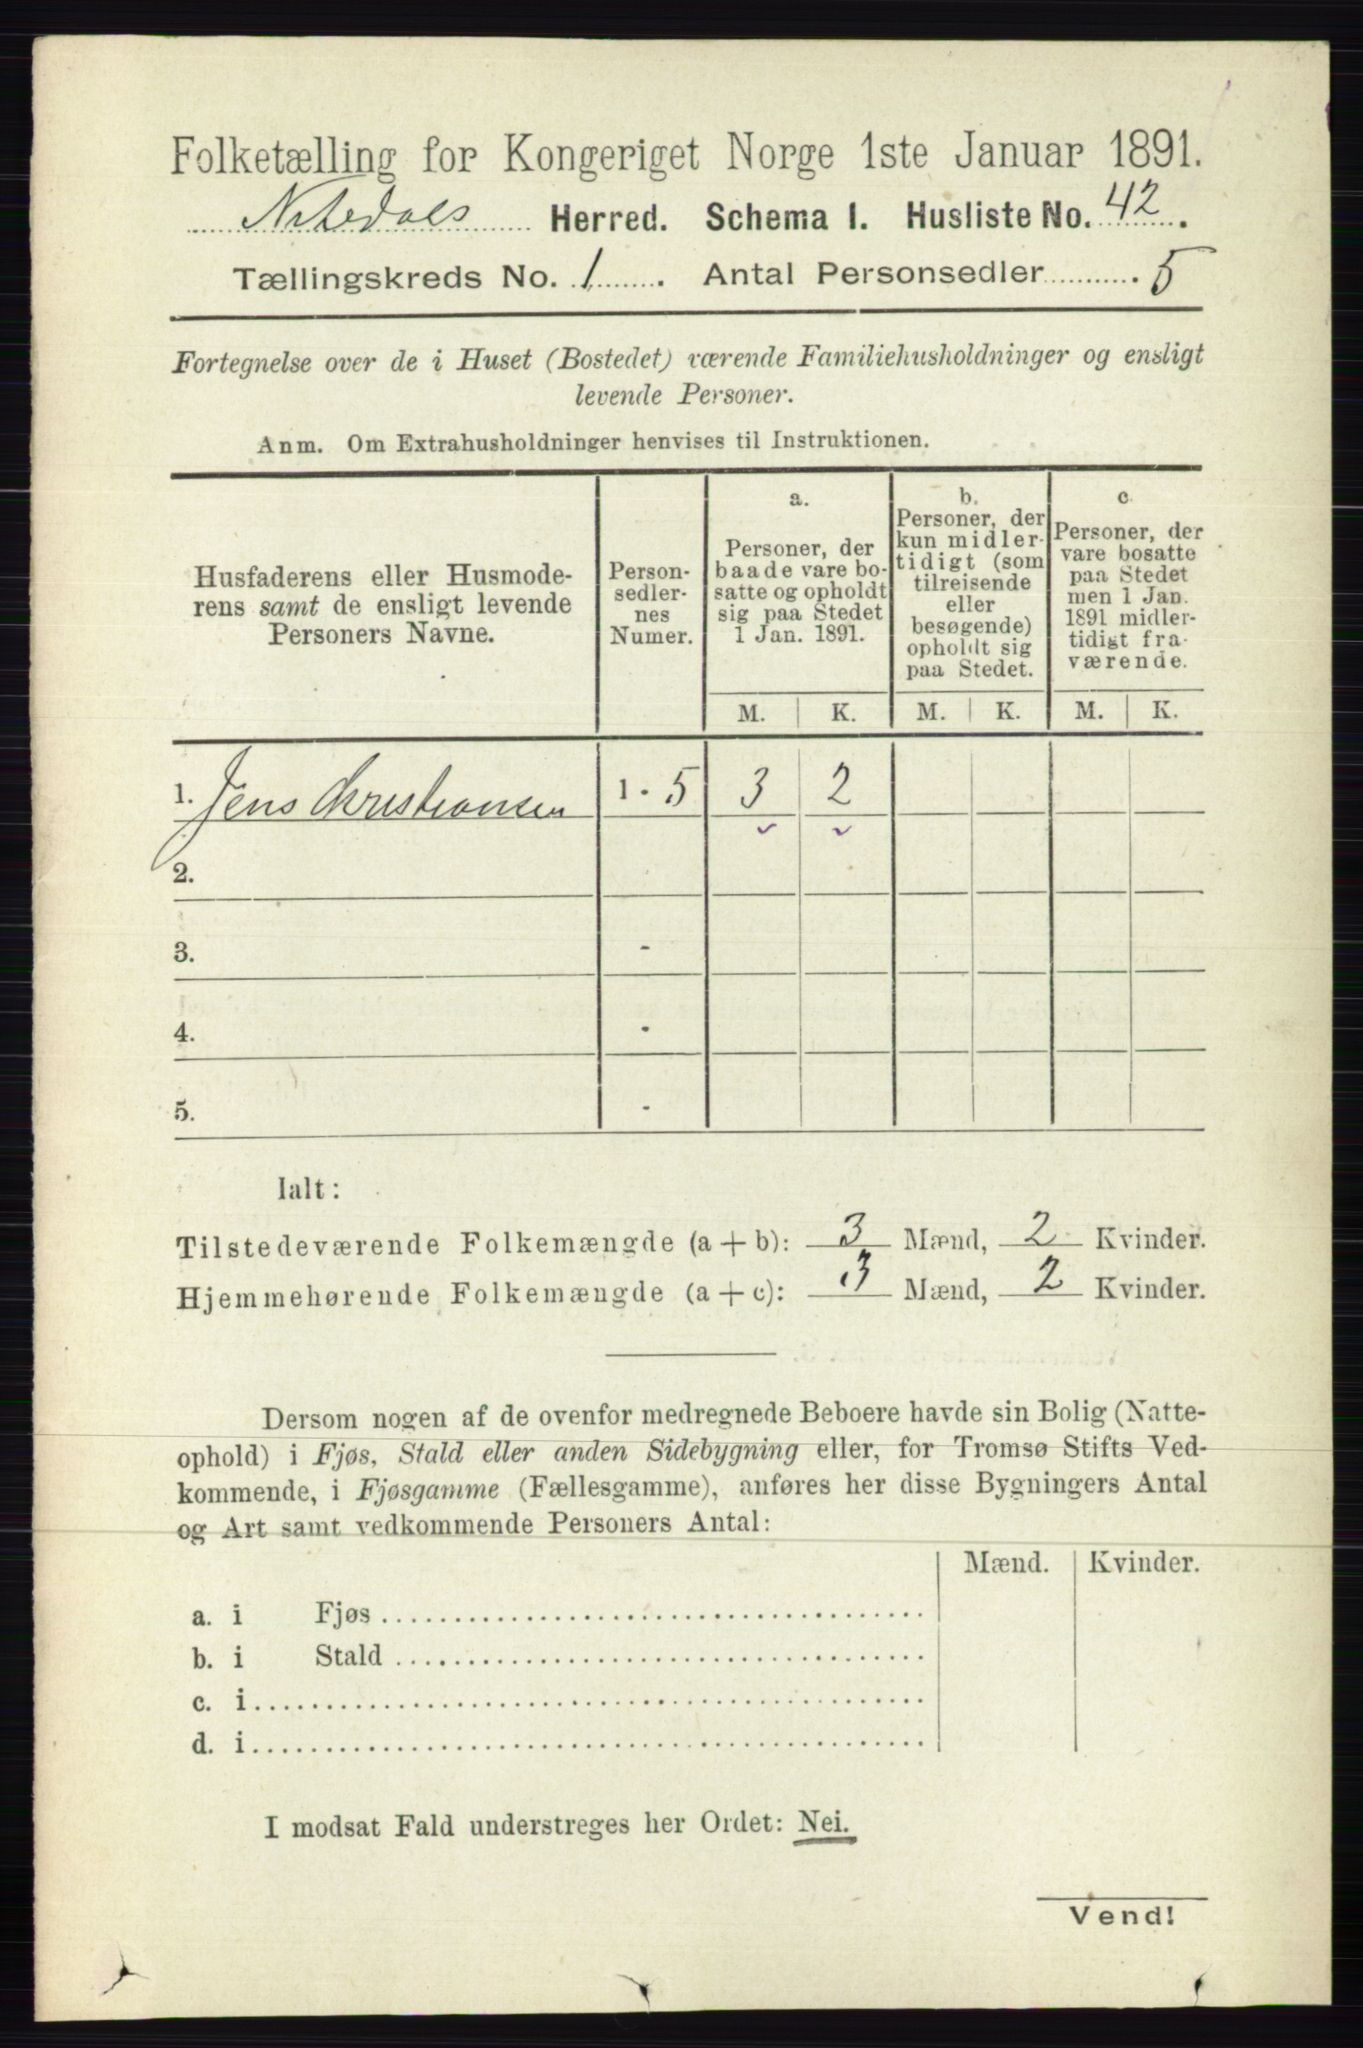 Folketælling for Kongeriget Norge 1ste Januar 1891.
Nitedals Herred. Schema I. Husliste No. 42.
Tællingskreds No. 1. Antal Personsedler........... 5
Fortegnelse over de i Huset (Bostedet) værende Familiehusholdninger og ensligt
levende Personer.
Anm. Om Extrahusholdninger henvises til Instruktionen.
Husfaderens eller Husmode-
rens samt de ensligt levende
Personers Navne.
Person-
sedler-
nes
Numer.
a.
Personer, der
baade vare bo-
satte og opholdt
sig paa Stedet
1 Jan. 1891.
b.
Personer, der
kun midler-
tidigt (som
tilreisende
eller
besøgende)
opholdt sig
paa Stedet.
c.
Personer, der
vare bosatte
paa Stedet
men 1 Jan.
1891 midler-
tidigt fra-
værende.
M. K. M. K. M. K.
1. Jens Christiansen 1 - 5 3 2
2.
3. -
4. -
5. -
Ialt:
Tilstedeværende Folkemængde (a + b): 3 Mænd, 2 Kvinder.
Hjemmehørende Folkemængde (a + c): 3 Mænd, 2 Kvinder.
Dersom nogen af de ovenfor medregnede Beboere havde sin Bolig (Natte-
ophold) i Fjøs, Stald eller anden Sidebygning eller, for Tromsø Stifts Ved-
kommende, i Fjøsgamme (Fællesgamme), anføres her disse Bygningers Antal
og Art samt vedkommende Personers Antal:
Mænd. Kvinder.
a. i Fjøs
b. i Stald
c. i
d. i
I modsat Fald understreges her Ordet: Nei.
Vend!